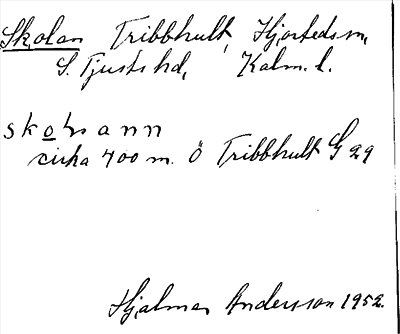 Skolan Tribbhult, Hjorteds sn,
S. Tjusts hd, Kalm. l.
skolann
cirka 400 m. Ö Tribbhult G 29
Hjalmar Andersson 1952.